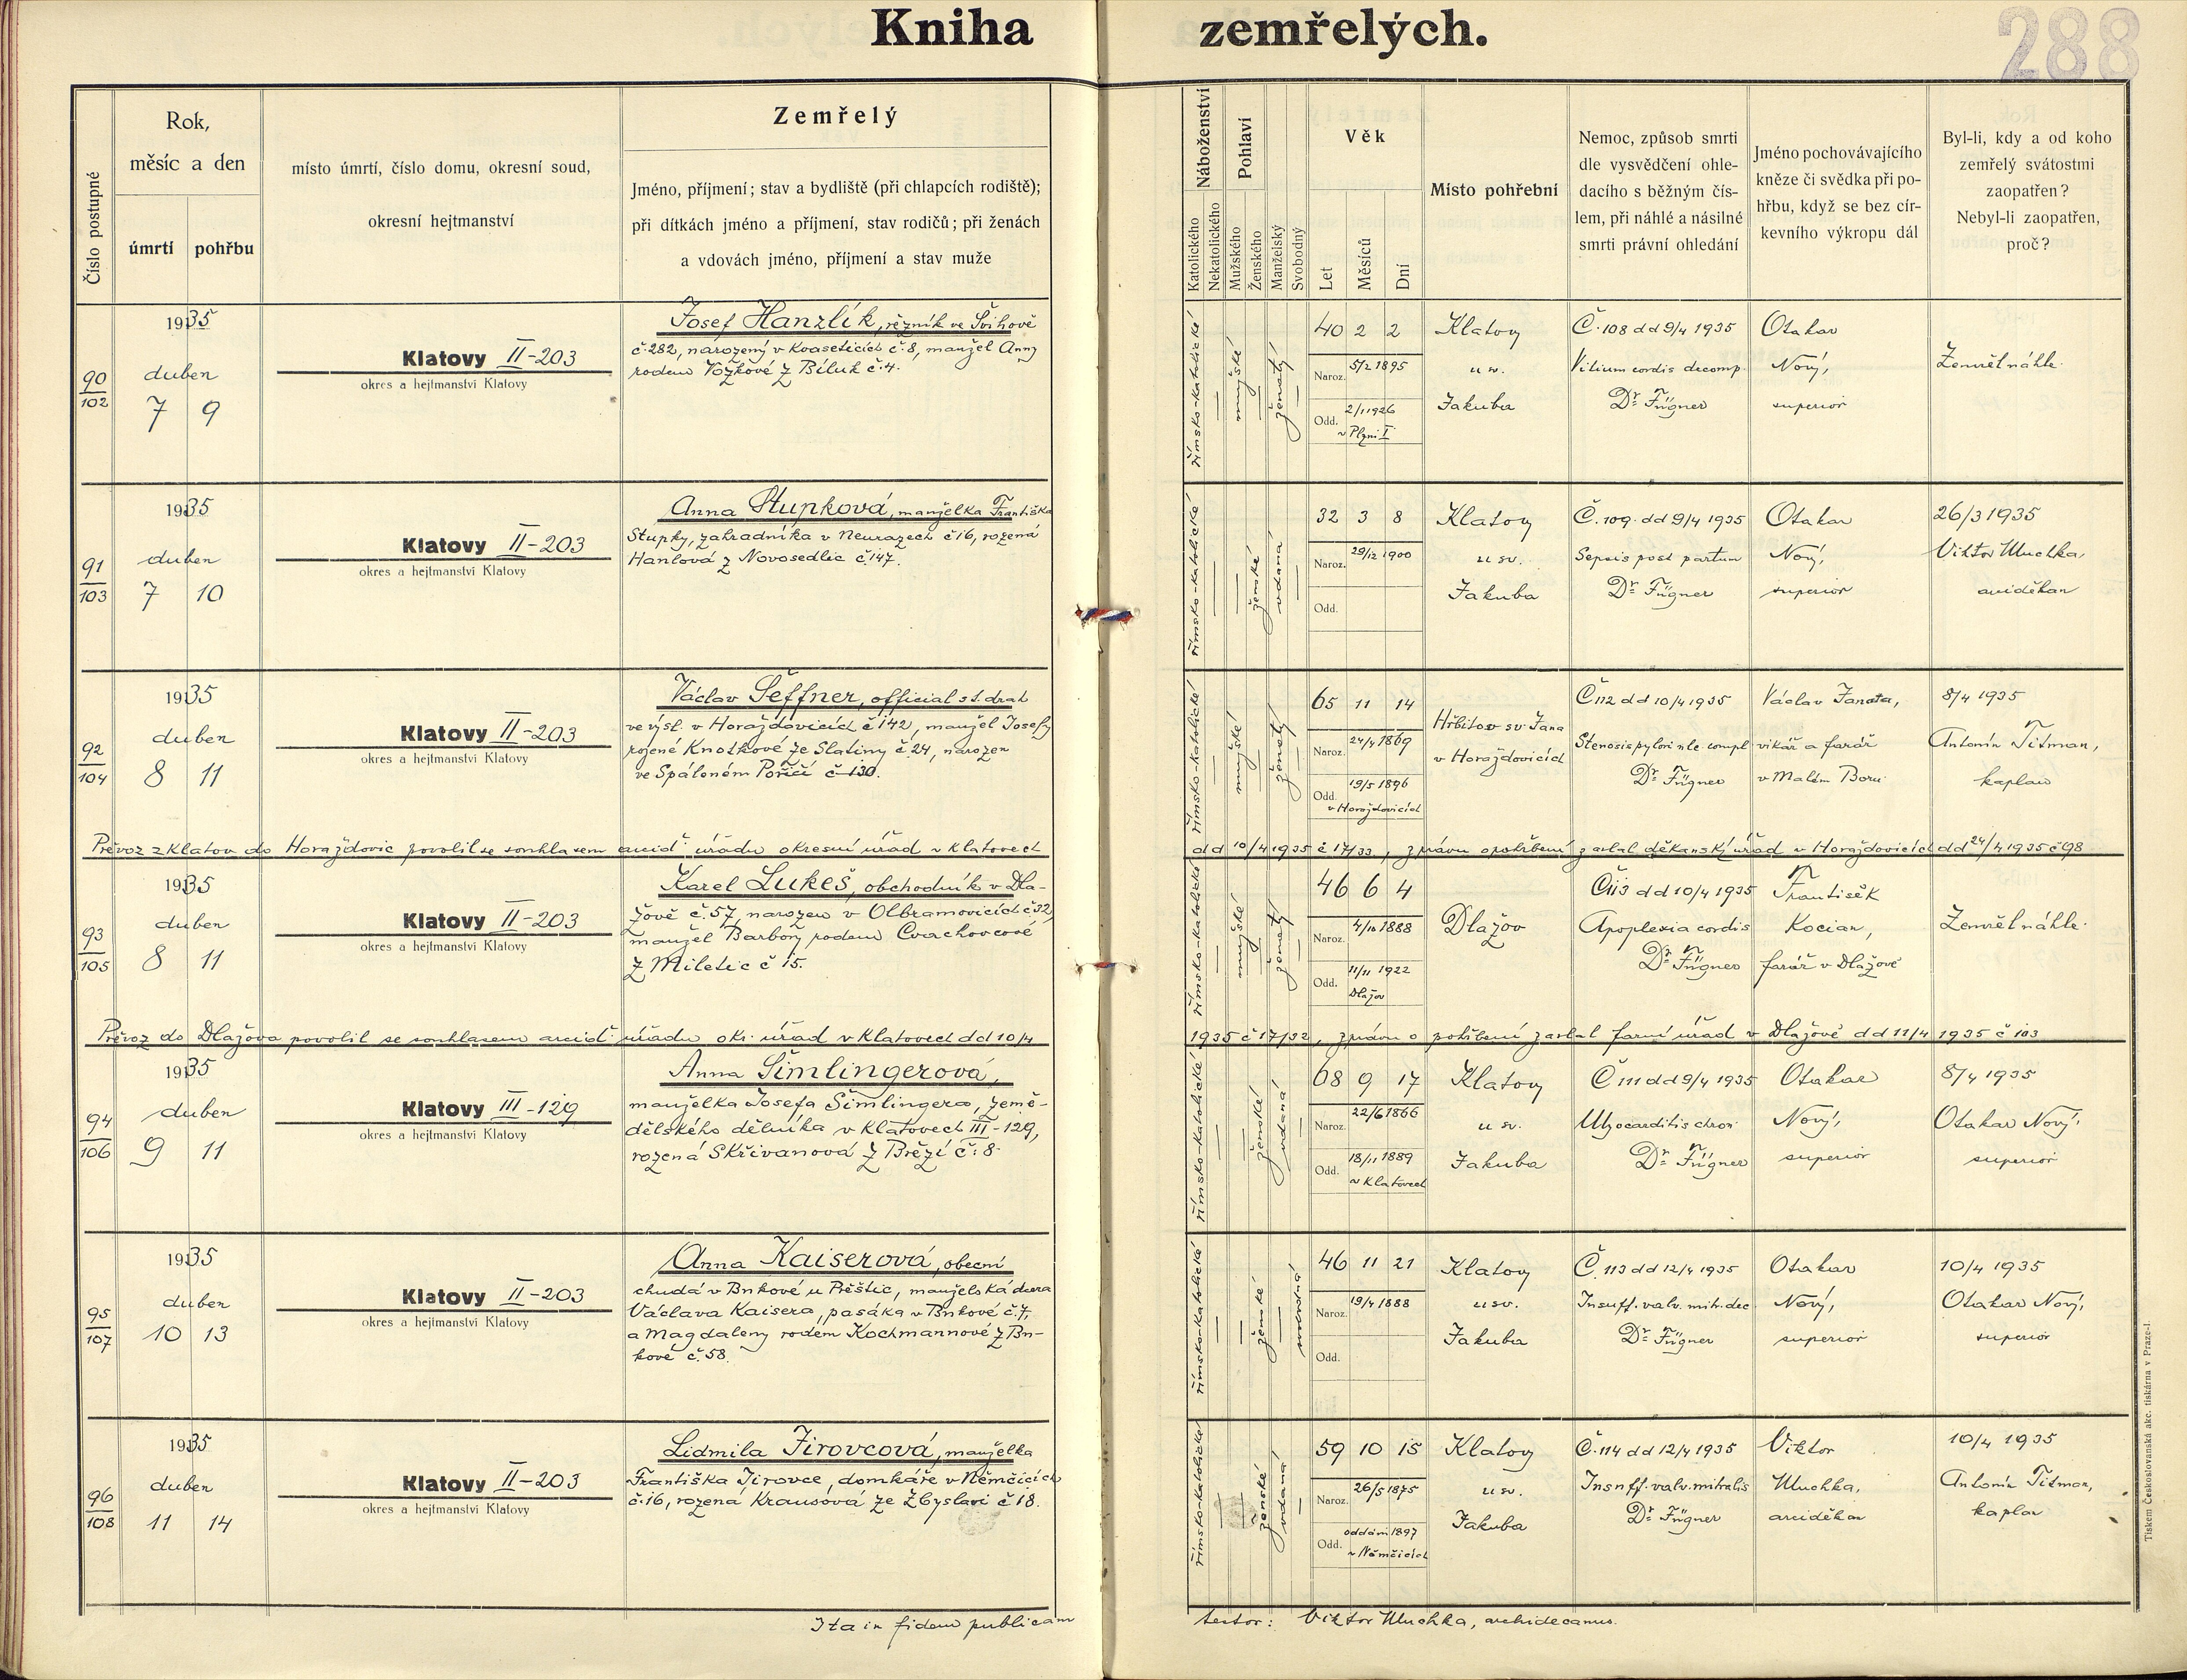 Kniha zemřelých.
288
Číslo postupné
Rok,
měsíc a den
úmrtí
pohřbu
místo úmrtí, číslo domu, okresní soud,
okresní hejtmanství
Zemřelý
Jméno, příjmení; stav a bydliště (při chlapcích rodiště);
při dítkách jméno a příjmení, stav rodičů; při ženách
a vdovách jméno, příjmení a stav muže
Náboženství
Katolického
Nekatolického
Pohlaví
Mužského
Ženského
Manželský
Svobodný
Věk
Let
Měsíců
Dní
Místo pohřební
Nemoc, způsob smrti
dle vysvědčení ohle-
dacího s běžným čís-
lem, při náhlé a násilné
smrti právní ohledání
Jméno pochovávajícího
kněze či svědka při po-
hřbu, když se bez cír-
kevního výkropu dál
Byl-li, kdy a od koho
zemřelý svátostmi
zaopatřen?
Nebyl-li zaopatřen,
proč?
90
102
1935
duben
7 9
Klatovy II-203
okres a hejtmanství Klatovy
Josef Hanzlík, řezník ve Švihově
č. 282, narozený v Kvaseticích č. 8, manžel Anny
rodem Vožkové z Běluk č. 4.
římsko-katolické
mužské
ženatý
40 2 2
Naroz. 5/2 1895
Odd. 2/11 1926
v Plzni I
Klatovy
u sv.
Jakuba
Č. 108 dd 9/4 1935
Vitium cordis decomp.
Dr. Fügner
Otakar
Nový,
superior
Zemřel náhle.
91
103
1935
duben
7 10
Klatovy II-203
okres a hejtmanství Klatovy
Anna Stupková, manželka Františka
Stupky, zahradníka v Neurazech č 16, rozená
Hanlová z Novosedlic č. 147.
římsko-katolické
ženské
vdaná
32 3 8
Naroz. 29/12 1900
Odd.
Klatovy
u sv.
Jakuba
Č. 109 dd 9/4 1935
Sepsis post partum
Dr. Fügner
Otakar
Nový,
superior
26/3 1935
Viktor Muchka,
arciděkan
92
104
1935
duben
8 11
Klatovy II-203
okres a hejtmanství Klatovy
Václav Šeffner, official st. drah
ve výsl. v Horažďovicích č 142, manžel Josefy
rozené Knotkové ze Slatiny č. 24, narozen
ve Spáleném Poříčí č 130.
římsko-katolické
mužské
ženatý
65 11 14
Naroz. 24/4 1869
Odd. 19/5 1896
v Horažďovicích
Hřbitov sv Jana
v Horažďovicích
Č 112 dd 10/4 1935
Stenosis pylori
Dr. Fügner
Václav Janota,
vikář a farář
v Malém Boru
8/4 1935
Antonín Titman,
kaplan
Převoz z Klatov do Horažďovic povolil se souhlasem arcid. úřadu okresní úřad v Klatovech
dd 10/4 1935 č 17/33, zprávu o pohřbení zaslal děkanský úřad v Horažďovicích dd 24/4 1935 č 98
93
105
1935
duben
8 11
Klatovy II-203
okres a hejtmanství Klatovy
Karel Lukeš, obchodník v Dla-
žově č. 57, narozen v Olbramovicích č 32,
manžel Barbory rodem Cvachovcové
z Miletic č 15.
římsko-katolické
mužské
ženatý
46 6 4
Naroz. 4/10 1888
Odd. 11/11 1922
Dlažov
Dlažov
Č 113 dd 10/4 1935
Apoplexia cordis
Dr. Fügner
František
Kocian,
farář v Dlažově
Zemřel náhle.
Převoz do Dlažova povolil se souhlasem arcid. úřadu okr. úřad v Klatovech dd 10/4
1935 č 17/32, zprávu o pohřbení zaslal farní úřad v Dlažově dd 11/4 1935 č 103
94
106
1935
duben
9 11
Klatovy III-129
okres a hejtmanství Klatovy
Anna Šimlingerová,
manželka Josefa Šimlingera, země-
dělského dělníka v Klatovech III-129,
rozená Skřivanová z Březí č. 8.
římsko-katolické
ženské
vdaná
68 9 17
Naroz. 22/6 1866
Odd. 18/11 1889
v Klatovech
Klatovy
u sv.
Jakuba
Č 111 dd 9/4 1935
Myocarditis chron.
Dr. Fügner
Otakar
Nový,
superior
8/4 1935
Otakar Nový,
superior
95
107
1935
duben
10 13
Klatovy II-203
okres a hejtmanství Klatovy
Anna Kaiserová, obecní
chudá v Bukové u Přeštic, manželská dcera
Václava Kaisera, pasáka v Bukové č. 7,
a Magdaleny rodem Kochmannové z Bu-
kové č. 58.
římsko-katolické
ženské
svobodná
46 11 21
Naroz. 19/4 1888
Odd.
Klatovy
u sv.
Jakuba
Č. 113 dd 12/4 1935
Insuff. valv. mitr. dec
Dr. Fügner
Otakar
Nový,
superior
10/4 1935
Otakar Nový,
superior
96
108
1935
duben
11 14
Klatovy II-203
okres a hejtmanství Klatovy
Lidmila Jirovcová, manželka
Františka Jirovce, domkáře v Němčicích
č. 16, rozená Krausová ze Zbyslavi č 18.
římsko-katolické
ženské
vdaná
59 10 15
Naroz. 26/5 1875
Odd. oddáni 1897
v Němčicích
Klatovy
u sv.
Jakuba
Č. 114 dd 12/4 1935
Insuff. valv. mitralis
Dr. Fügner
Viktor
Muchka,
arciděkan
10/4 1935
Antonín Titman,
kaplan
Ita in fidem publicam
testor: Viktor Muchka, archidecanus.
Tiskem Československá akc. tiskárna v Praze-I.